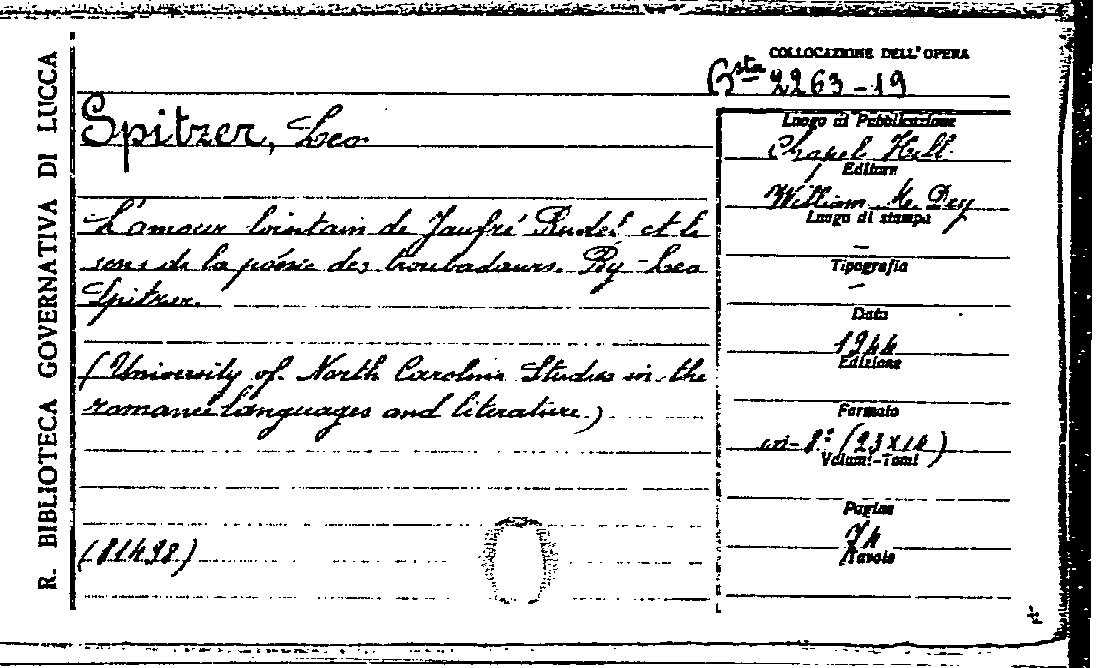 R. BIBLIOTECA GOVERNATIVA DI LUCCA
COLLOCAZIONE DELL'OPERA
Bsta 2263-19
Spitzer, Leo
L'amour lointain de Jaufré Rudel et le
sens de la poésie des troubadours. By Leo
Spitzer.
(University of North Carolina Studies in the
romance languages and literature.)
(81498)
Luogo di Pubblicazione
Chapel Hill
Editore
William M. Dey
Luogo di stampa
–
Tipografia
–
Data
1944
Edizione
Formato
in-8° (23x14)
Volumi-Tomi
Pagine
74
Tavole